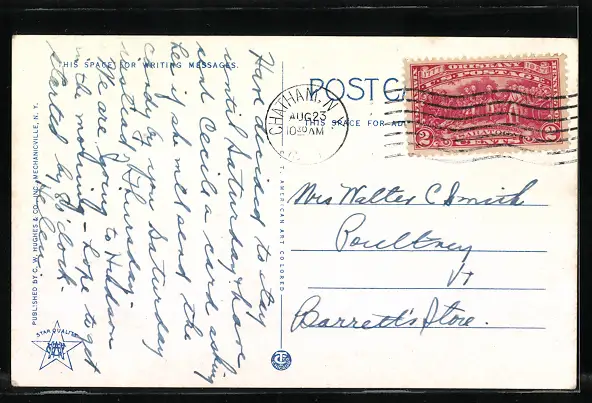 THIS SPACE FOR WRITING MESSAGES.
Have decided to stay
until Saturday & have
sent Cecile a card asking
her if she melt and the
candy by you Saturday
instead Thursday.
We are going to Hudson
in the morning - hope to get
started by 8 o'clock.
Helen.
PUBLISHED BY C. W. HUGHES & CO., INC., MECHANICVILLE, N. Y.
STAR QUALITY
C. T. AMERICAN ART COLORED
POST CA
THIS SPACE FOR AD
CHATHAM, N
AUG 23
10 30 AM
1777 BURGOYNE 1927
U.S. POSTAGE
2 CENTS 2
Mrs Walter C Smith
Poultney
Vt
Barrett's Store.